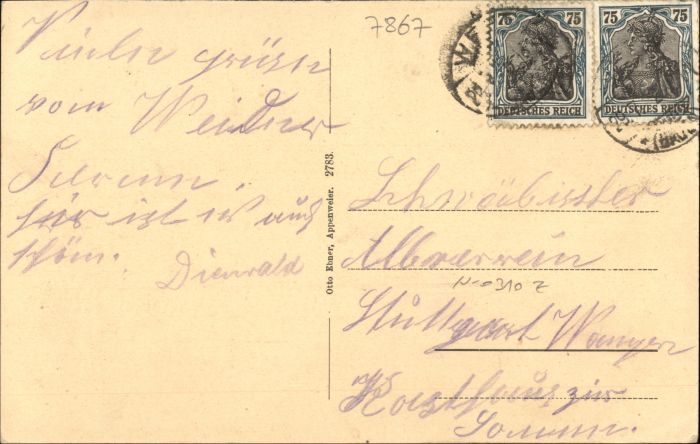 7867
75 75
75 75
DEUTSCHES REICH
DEUTSCHES REICH
Vielen grüsse
vom Weidner
für ist es auch
schön.
Dienwald
Otto Ebner, Appenweier. 2783.
Schwäbischer
Albverein
N-0310 Z
Stuttgart Wangen
Kasthaus zur
Sonnen.